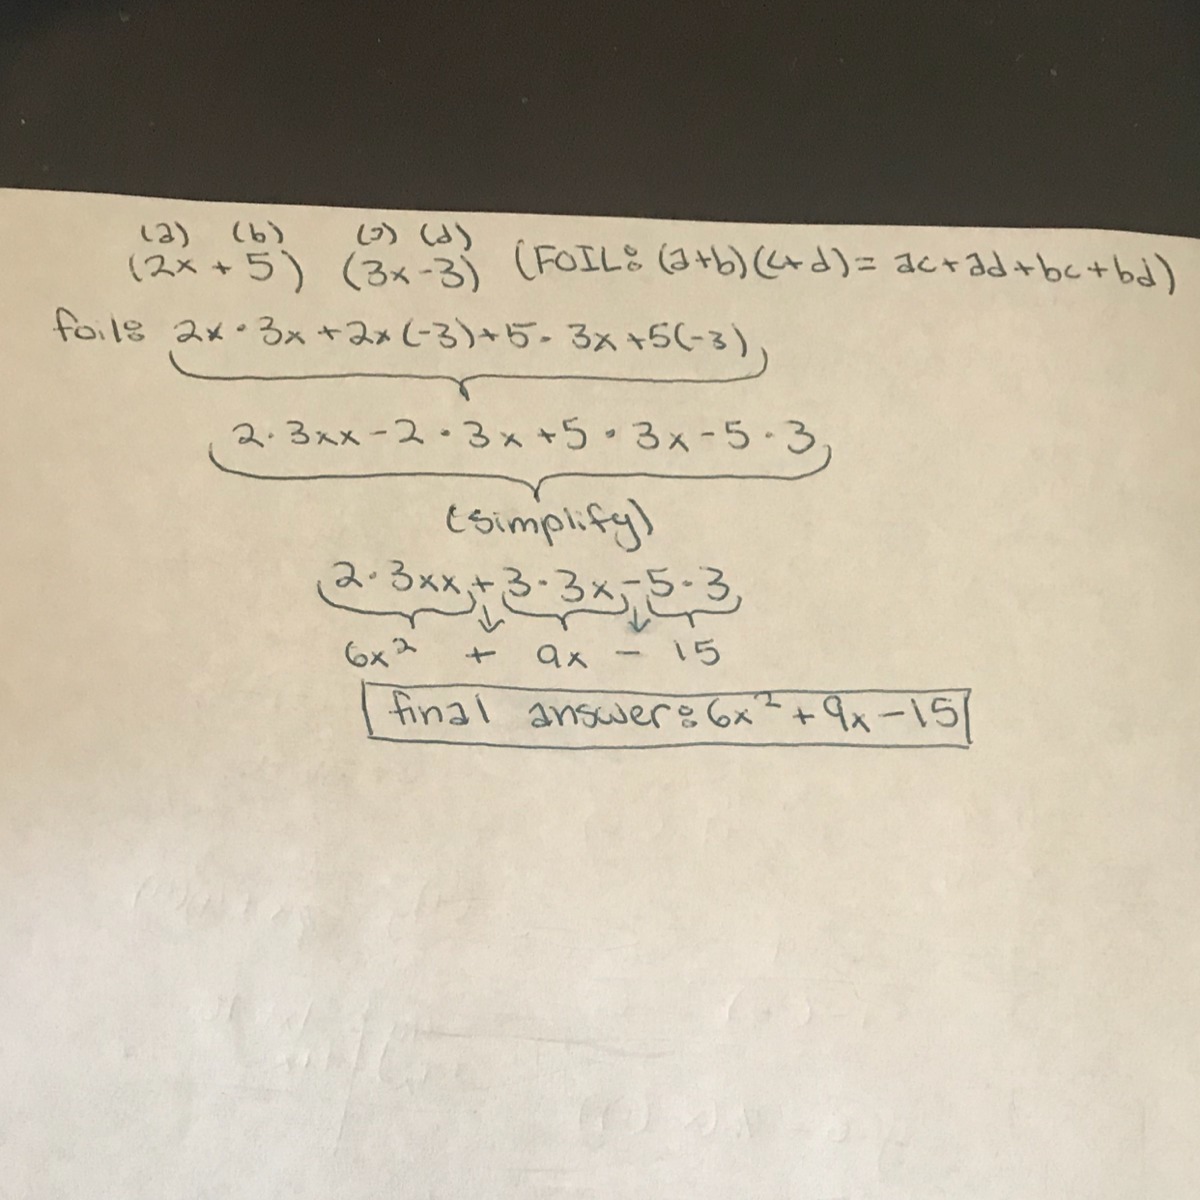 (a) (b) (c) (d)
(2x + 5) (3x - 3) (FOIL: (a+b)(c+d) = ac + ad + bc + bd)
foil: 2x · 3x + 2x (-3) + 5 · 3x + 5(-3)
2 · 3xx - 2 · 3x + 5 · 3x - 5 · 3
(simplify)
2 · 3xx + 3 · 3x - 5 · 3
6x² + 9x - 15
final answer: 6x² + 9x - 15